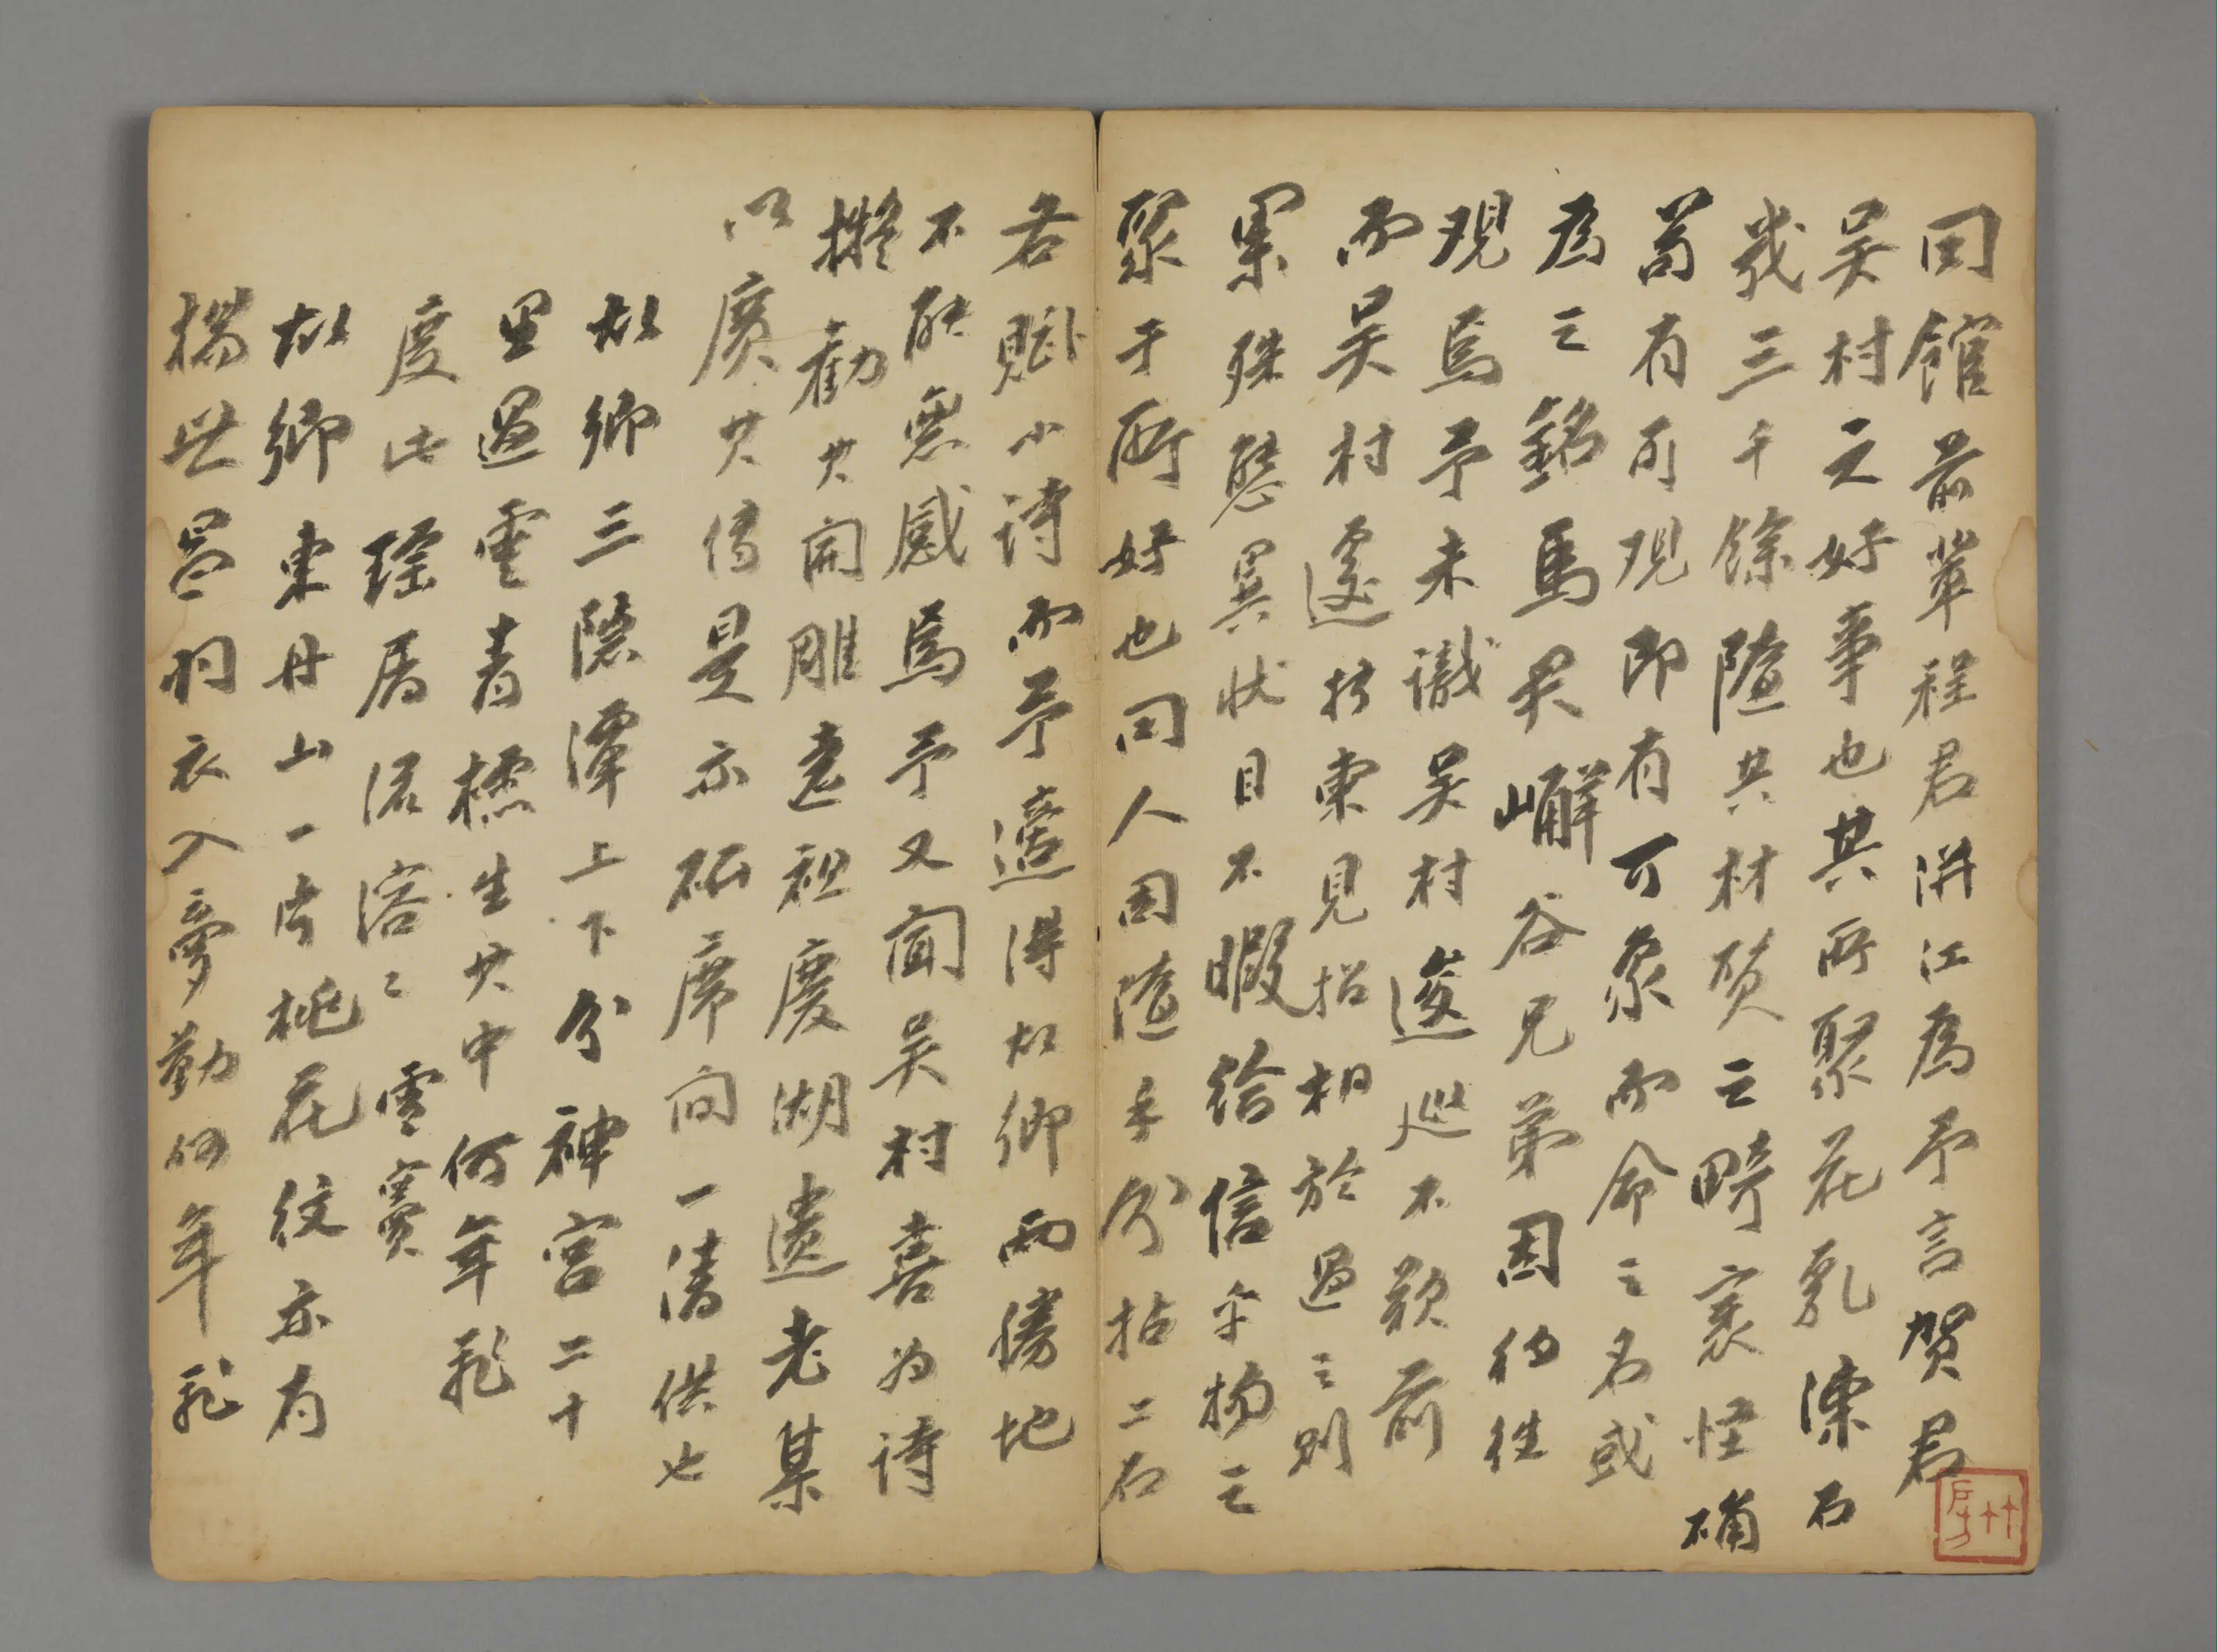 同館前輩程君洴江為予言賀君
吳村之好事也其所聚花乳湅石
幾三千餘隨其材質之畸裹怪确
苟有可觀即有可象而命之名或
為之銘馬君嶰谷兄弟因得往
觀焉予未識吳村逡巡不欵前
而吳村遽折柬見招相於過之則
纍殊態異狀目不暇給信乎物之
聚于所好也同人因隨手分拈二石
各賦小詩而予適得於鄉兩勝地
不能無感焉予又聞吳村喜為詩
擬勸其開雕遠祖慶湖遺老某
以廣其傳是亦研席間一清供也
故鄉三隱潭上下分神宮二十
里過雪青標生其中何年飛
度此瑤屑溶溶ミ雪竇
故鄉東丹山一片桃花紋亦有
揚 羽衣入夢勤何年飛